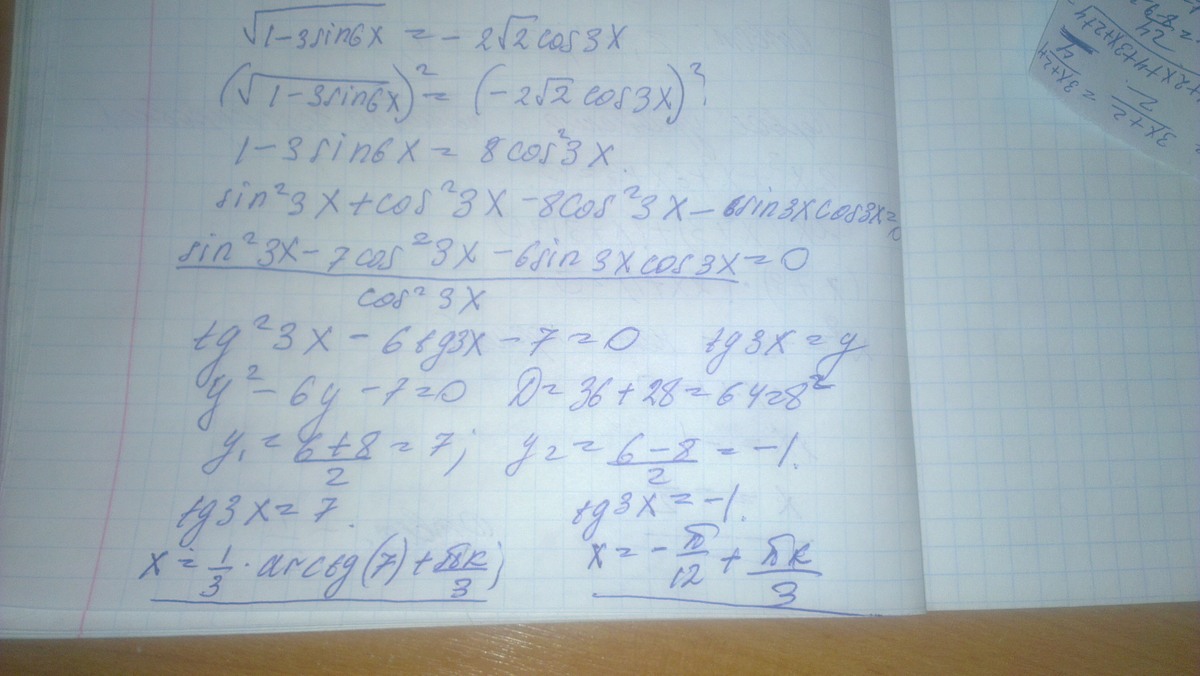 √(1-3sin6x) = -2√2 cos3x
(√(1-3sin6x))² = (-2√2 cos3x)²;
1-3sin6x = 8cos²3x.
sin²3x+cos²3x-8cos²3x-6sin3xcos3x=0
sin²3x-7cos²3x-6sin3xcos3x=0
cos²3x
tg²3x-6tg3x-7=0 tg3x=y
y²-6y-7=0 D=36+28=64=8²
y₁=(6+8)/2=7; y₂=(6-8)/2=-1.
tg3x=7. tg3x=-1.
x=1/3·arctg(7)+πk/3; x=-π/12+πk/3